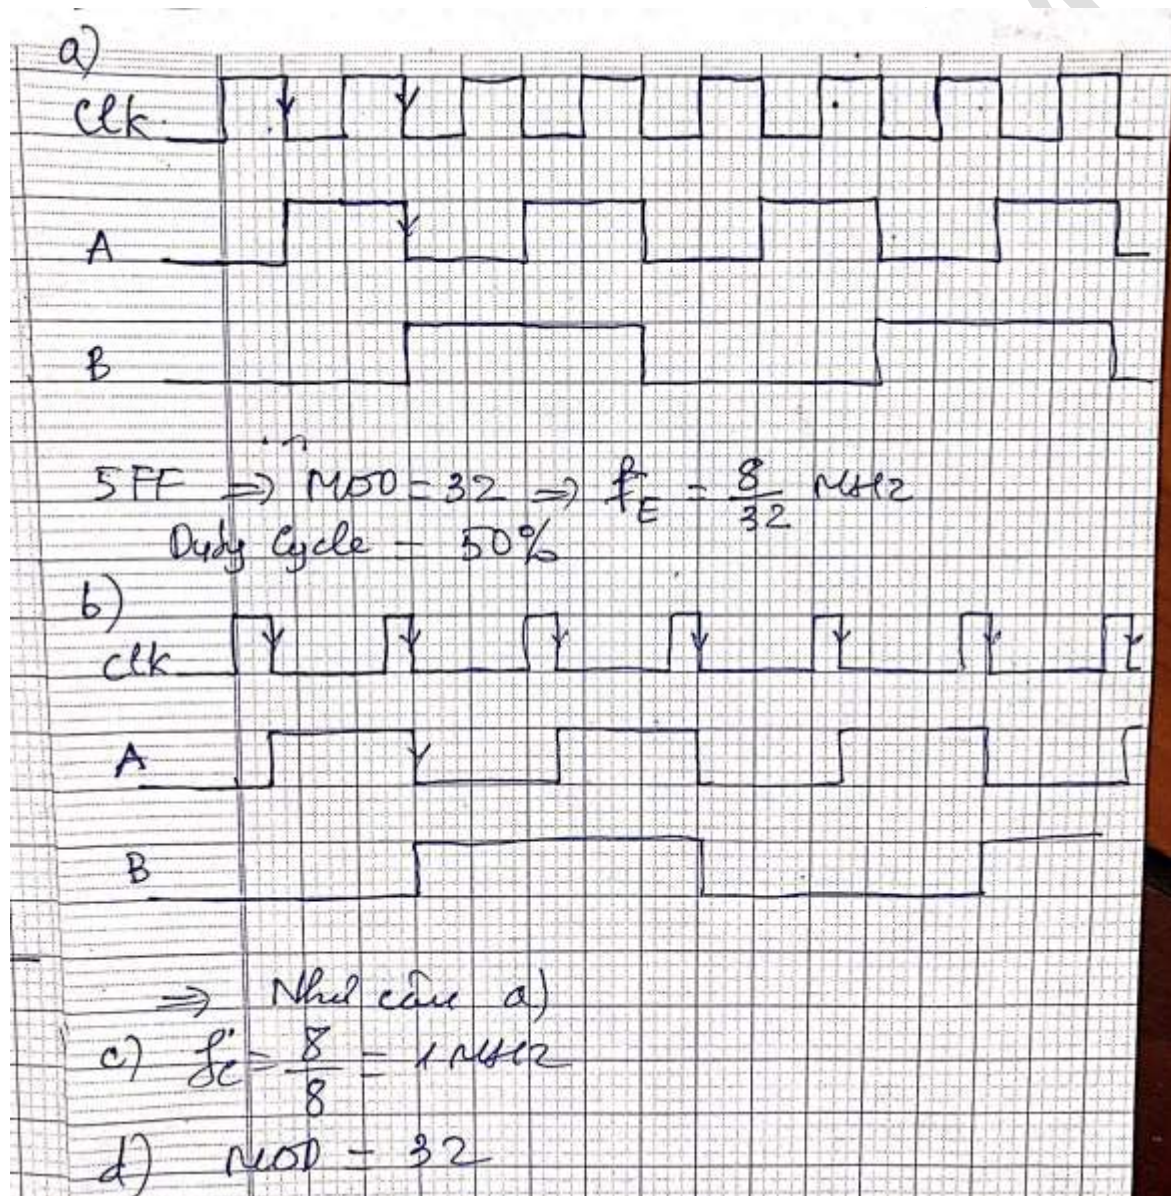 a)
Clk
A
B
5FF ⇒ MOD = 32 ⇒ f_E = 8/32 MHz
Duty Cycle = 50%
b)
clk
A
B
⇒ Như câu a)
c) f_C = 8/8 = 1 MHz
d) MOD = 32